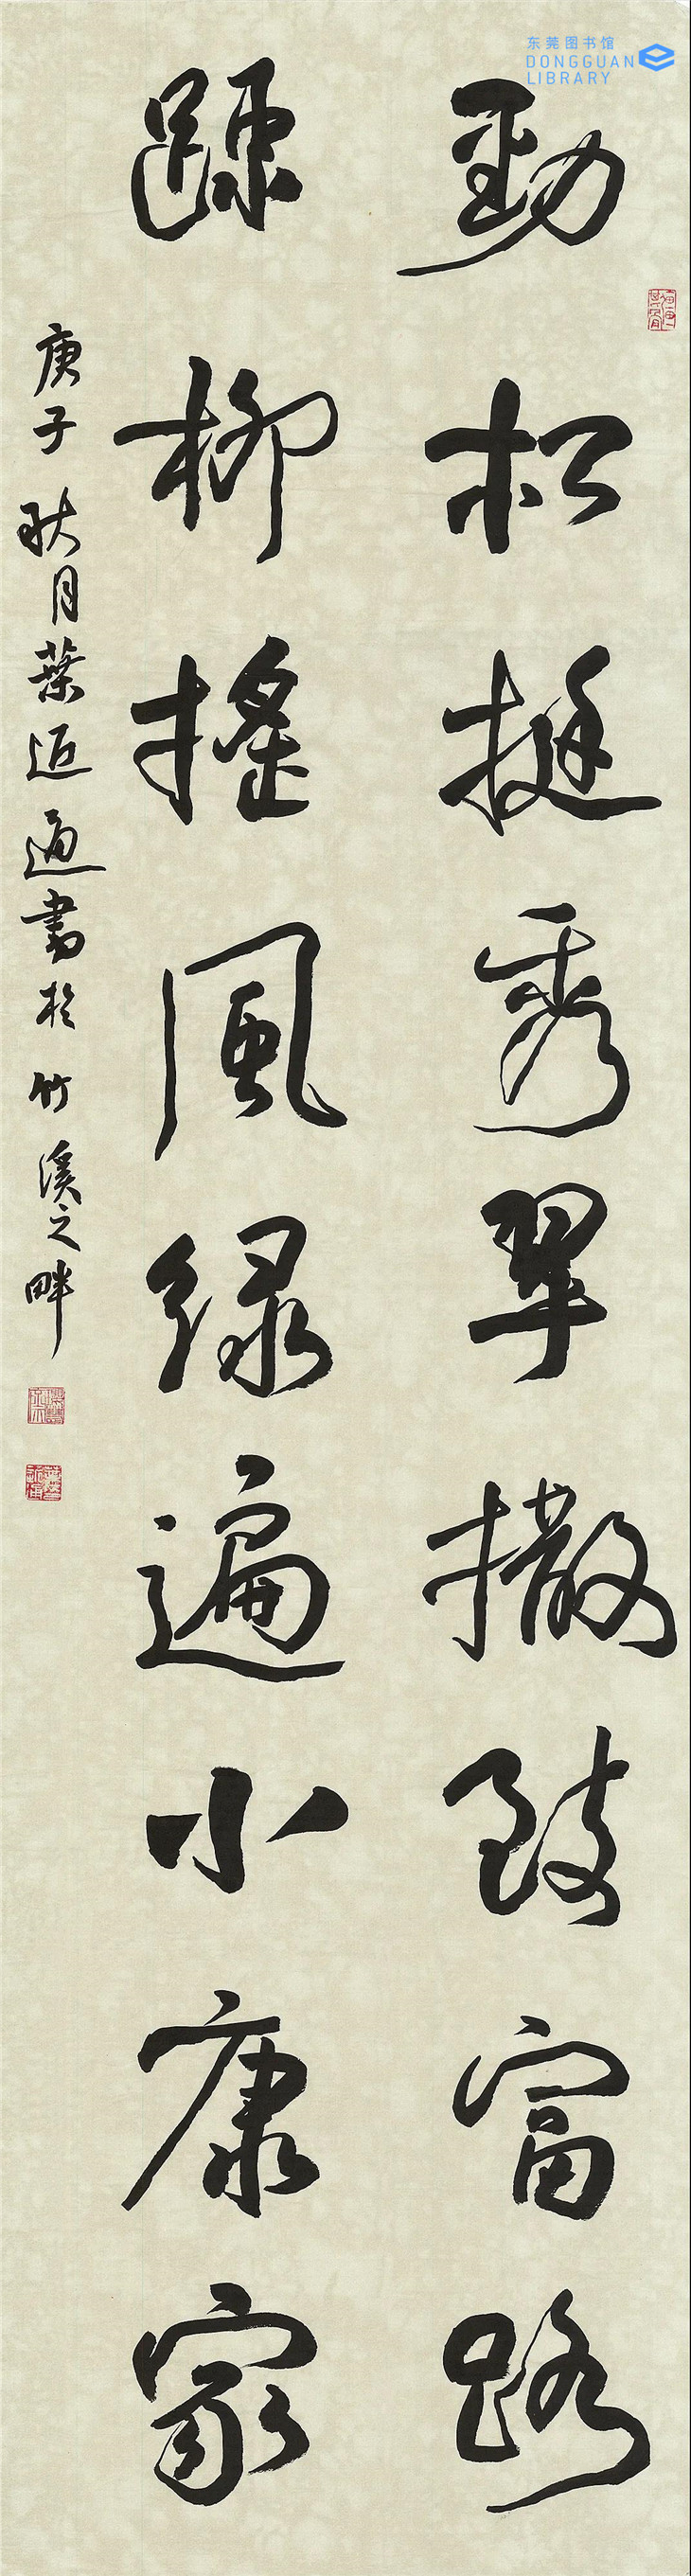 东莞图书馆
DONGGUAN
LIBRARY
勁松挺秀翠撒致富路
踈柳摇風绿遍小康家
庚子秋月葉近通書於竹溪之畔